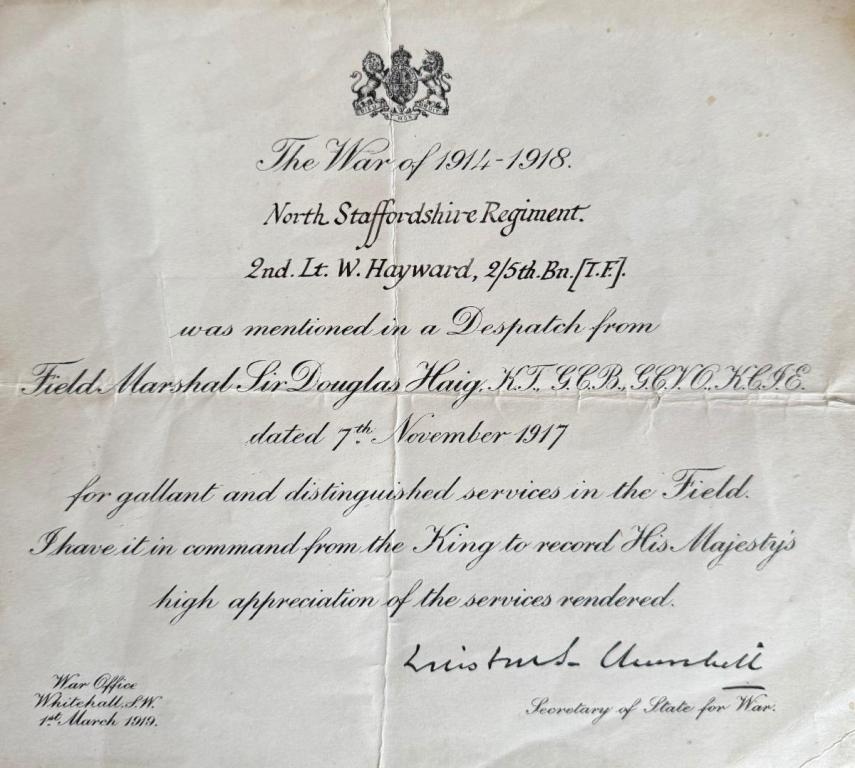 The War of 1914-1918.
North Staffordshire Regiment.
2nd. Lt. W. Hayward, 2/5th. Bn. [T.F.].
was mentioned in a Despatch from
Field Marshal Sir Douglas Haig, K.T., G.C.B., G.C.V.O., K.C.I.E.
dated 7th November 1917
for gallant and distinguished services in the Field.
I have it in command from the King to record His Majesty's
high appreciation of the services rendered.
Winston S. Churchill
War Office
Whitehall, S.W.
1st March 1919.
Secretary of State for War.